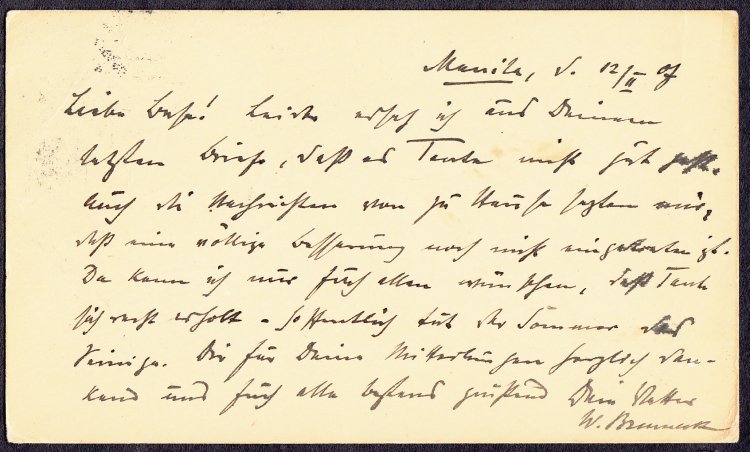 Manila, d. 12/II 07
Liebe Base! Leider ersah ich aus Deinem
letzten Briefe, daß es Tante nicht gut geht.
Auch die Nachrichten von zu Hause sagten mir,
daß eine völlige Besserung noch nicht eingetreten ist.
Da kann ich nur Euch allen wünschen, daß Tante
sich recht erholt - hoffentlich tut der Sommer das
Seinige. Dir für Deine Mitteilungen herzlich dan-
kend und Euch alle bestens grüßend Dein Vetter
W.